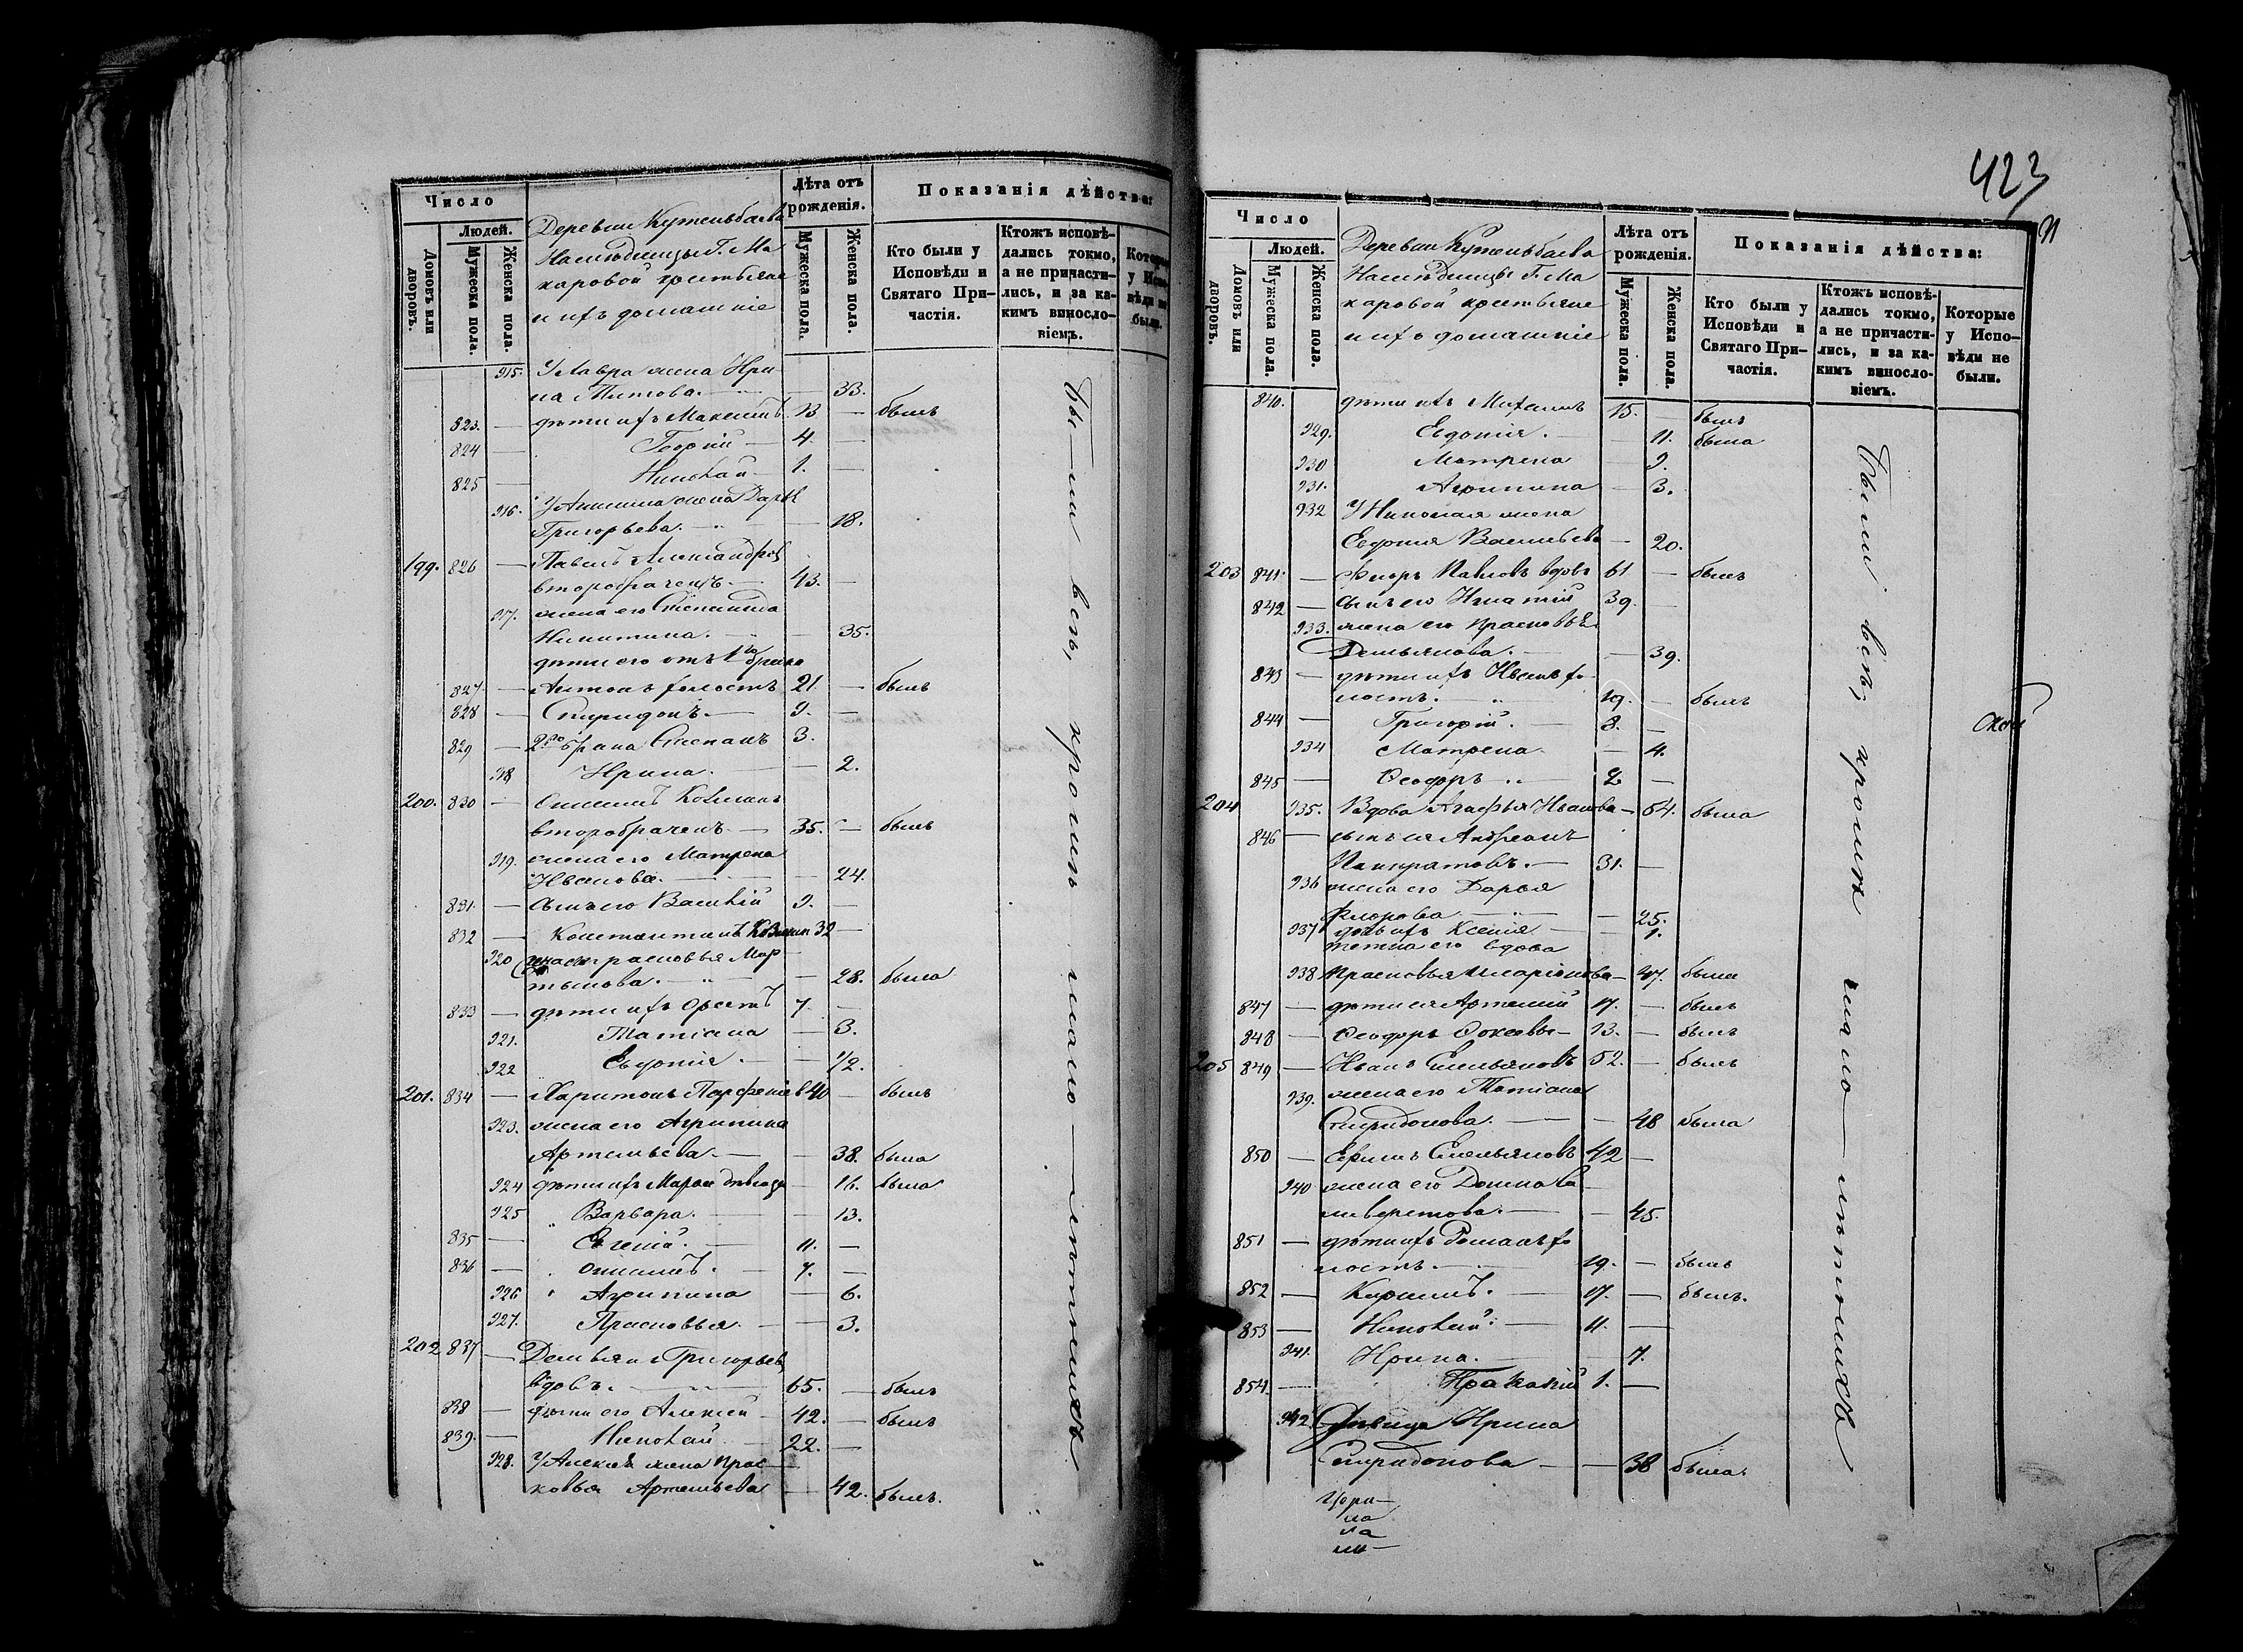 Число
Людей.
Домовъ или дворовъ.
Мужеска пола.
Женска пола.
Деревни Кутенбаева
Наследницы Г. Ма
каровой крестьяне
и ихъ домашніе
Лѣта отъ рожденія.
Мужеска пола.
Женска пола.
Показанія дѣйства:
Кто были у Исповѣди и Святаго При-частія.
Ктожъ исповѣ-дались токмо, а не причасти-лись, и за ка-кимъ винословіемъ.
915. У Лавра жена Ири
на Титова. — 33.
823. — дѣти ихъ Максимъ 13 — былъ
824 — Георгій — 4. —
825 — Николай — 1. —
916. У жена Дарья
Григорьева. — 18.
199. 826 — Павелъ Александровъ
второбраченъ. — 43. —
917. жена его Степанида
Никитина. — 35.
дѣти его отъ 1го брака
827. — Антонъ холостъ 21. — былъ
828 — Спиридонъ. — 9. —
829 — 2го брака Степанъ 3.
918 Ирина. — 2.
200. 830 —
второбраченъ. — 35. — былъ
919. жена его Матрена
Иванова. — 24.
831. — сынъ его Василій 9. —
832 — Константинъ 32 —
920 жена Прасковья Мар
тынова. — 28. была
833 — дѣти ихъ Орестъ 7. —
921. Татіана — 3.
922 Евдокія. — 1/2.
201. 834 — Харитонъ Парфеніевъ 40 — былъ
923. жена его Агрипина
Артемьева. — 38. была
924 дѣти ихъ Марья дѣвица — 16. была
925 Варвара. — 13.
835 — Евгеній. — 11. —
836 — Онисимъ. — 7. —
926 Агрипина — 6.
927. Прасковья. — 3.
202 837 — Демьянъ Григорьевъ
вдовъ. — 65. — былъ
838 — дѣти его Алексѣй 42. — былъ
839. — Николай 22. —
928. У Алексѣя жена Прас
ковья Артемьева 42. былъ.
Бы-ли всѣ, кромѣ мало-лѣтнихъ
423
Число
Людей.
Домовъ или дворовъ.
Мужеска пола.
Женска пола.
Деревни Кутенбаева
Наслѣдницы Г. Ма
каровой крестьяне
и ихъ домашніе
Лѣта отъ рожденія.
Мужеска пола.
Женска пола.
Показанія дѣйства:
Кто были у Исповѣди и Святаго При-частія.
Ктожъ исповѣ-дались токмо, а не причасти-лись, и за ка-кимъ винословіемъ.
Которые у Испо-вѣди не были.
840. дѣти ихъ Михаилъ 15. — былъ
929. Евдокія. — 11. была
930 Матрена 9.
931. Агрипина — 3.
932 У Николая жена
Евдокія Васильева — 20.
203 841. — Флоръ Павловъ вдовъ 61 — былъ
842 — сынъ его Игнатій 39. —
933. жена его Прасковья
Демьянова. — 39.
843 — дѣти ихъ Иванъ хо
лостъ. 19. — былъ
844 — Григорій. — 8. —
934 Матрена. — 4.
845 — Ѳеодоръ 2 —
204 935. Вдова Агафья Иванова — 54. была
846 — сынъ ея Андреанъ
Панкратовъ. — 31. —
936 жена его Дарья
Флорова — 25.
937 дочь ихъ Ксенія — 1.
тетка его вдова
938 Прасковья Иларіонова — 47. была
847 — дѣти ея Артемій 17. — былъ
848 — Ѳеодоръ — 13. — былъ
205 849 — Иванъ Емельяновъ 52. — былъ
939. жена его Татіана
Спиридонова. — 48 была
850 — Ефимъ Емельяновъ 42 —
940 жена его Домна
— 45.
851 — дѣти ихъ Романъ хо
лостъ. — 19. — былъ
852 — Кирилъ. — 17. — былъ.
853 — Николай. — 11. —
941. Ирина. — 7.
854. — 1. —
942. Дѣвица Ирина
Спиридонова — 38 была.
Были всѣ, кромѣ мало-лѣтнихъ